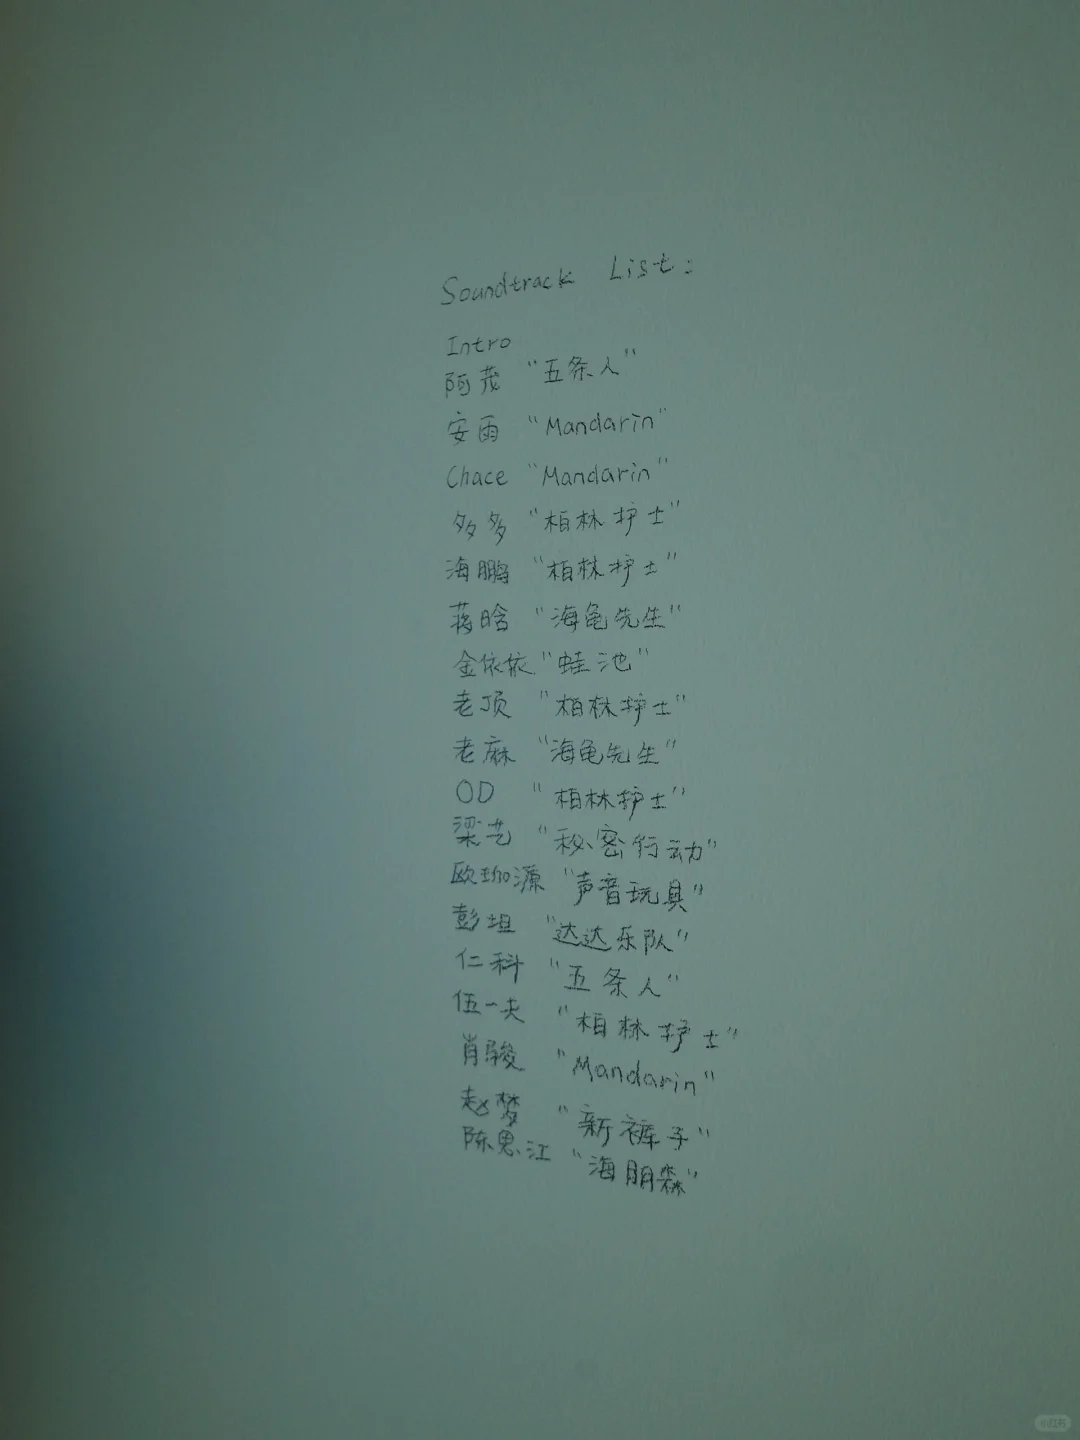 Soundtrack List:
Intro
阿茂 "五条人"
安雨 "Mandarin"
Chace "Mandarin"
多多 "柏林护士"
海鹏 "柏林护士"
蒋晗 "海龟先生"
金依依 "蛙池"
老顶 "柏林护士"
老麻 "海龟先生"
OD "柏林护士"
梁艺 "秘密行动"
欧珈源 "声音玩具"
彭坦 "达达乐队"
仁科 "五条人"
伍一夫 "柏林护士"
肖骏 "Mandarin"
赵梦 "新裤子"
陈思江 "海朋森"
小红书